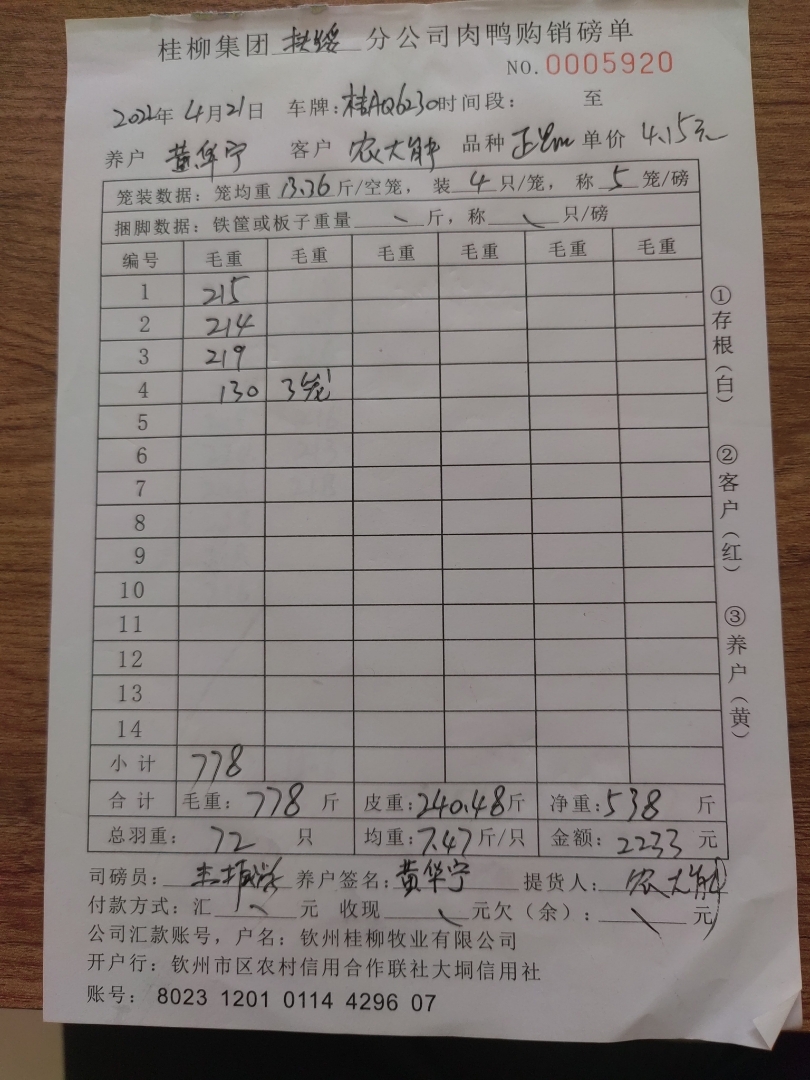 桂柳集团 扶绥 分公司肉鸭购销磅单
NO.0005920
2022年 4月21日 车牌:桂AQ6230时间段: 至
养户 黄华宁 客户 农大 品种 单价 4.15元
笼装数据:笼均重 13.36 斤/空笼, 装 4 只/笼, 称 5 笼/磅
捆脚数据:铁筐或板子重量 斤,称 只/磅
编号 毛重 毛重 毛重 毛重 毛重 毛重
1 215
2 214
3 219
4 130 3笼
5
6
7
8
9
10
11
12
13
14
小计 778
合计 毛重:778 斤 皮重:240.48斤 净重:538 斤
总羽重: 72 只 均重:7.47斤/只 金额:2233 元
司磅员: 养户签名:黄华宁 提货人:农大
付款方式:汇 元 收现 元欠(余): 元
公司汇款账号,户名:钦州桂柳牧业有限公司
开户行:钦州市区农村信用合作联社大垌信用社
账号: 8023 1201 0114 4296 07
①存根(白)
②客户(红)
③养户(黄)